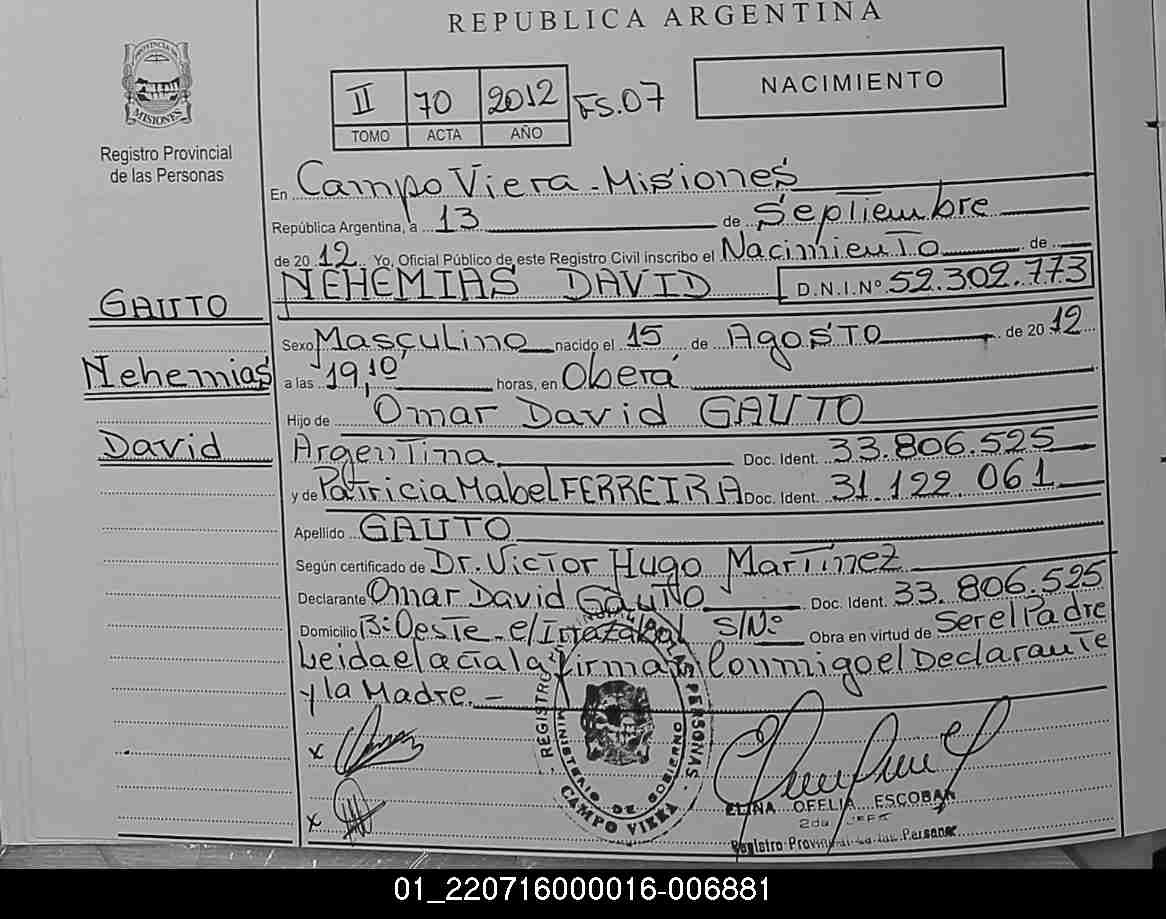 REPUBLICA ARGENTINA
PROVINCIA DE
MISIONES
Registro Provincial
de las Personas
II 70 2012 FS.07
TOMO ACTA AÑO
NACIMIENTO
En Campo Viera - Misiones
República Argentina, a 13 de Septiembre
de 2012 Yo, Oficial Público de este Registro Civil inscribo el Nacimiento de
NEHEMIAS DAVID D.N.I.Nº 52.302.773
GAUTO
Sexo Masculino nacido el 15 de Agosto de 2012
Nehemias
a las 19,10 horas, en Oberá
Hijo de Omar David GAUTO
David
Argentina Doc. Ident. 33.806.525
y de Patricia Mabel FERREIRA Doc. Ident. 31.122.061
Apellido GAUTO
Según certificado de Dr. Victor Hugo Martinez
Declarante Omar David Gauto Doc. Ident. 33.806.525
Domicilio Bº Oeste - c/ Irrazabal S/Nº Obra en virtud de Ser el Padre
Leida el acta la firman Conmigo el Declarante
y la Madre. -
x
x
REGISTRO PERSONAS
MINISTERIO DE GOBIERNO
CAMPO VIERA
ELINA OFELIA ESCOBAR
2da JEFE
Registro Provincial de las Personas
01_220716000016-006881